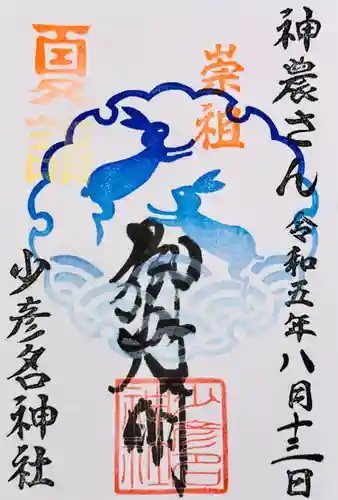 神農さん 令和五年八月十三日
崇祖
夏詣
少彦名神社
少彦名神社